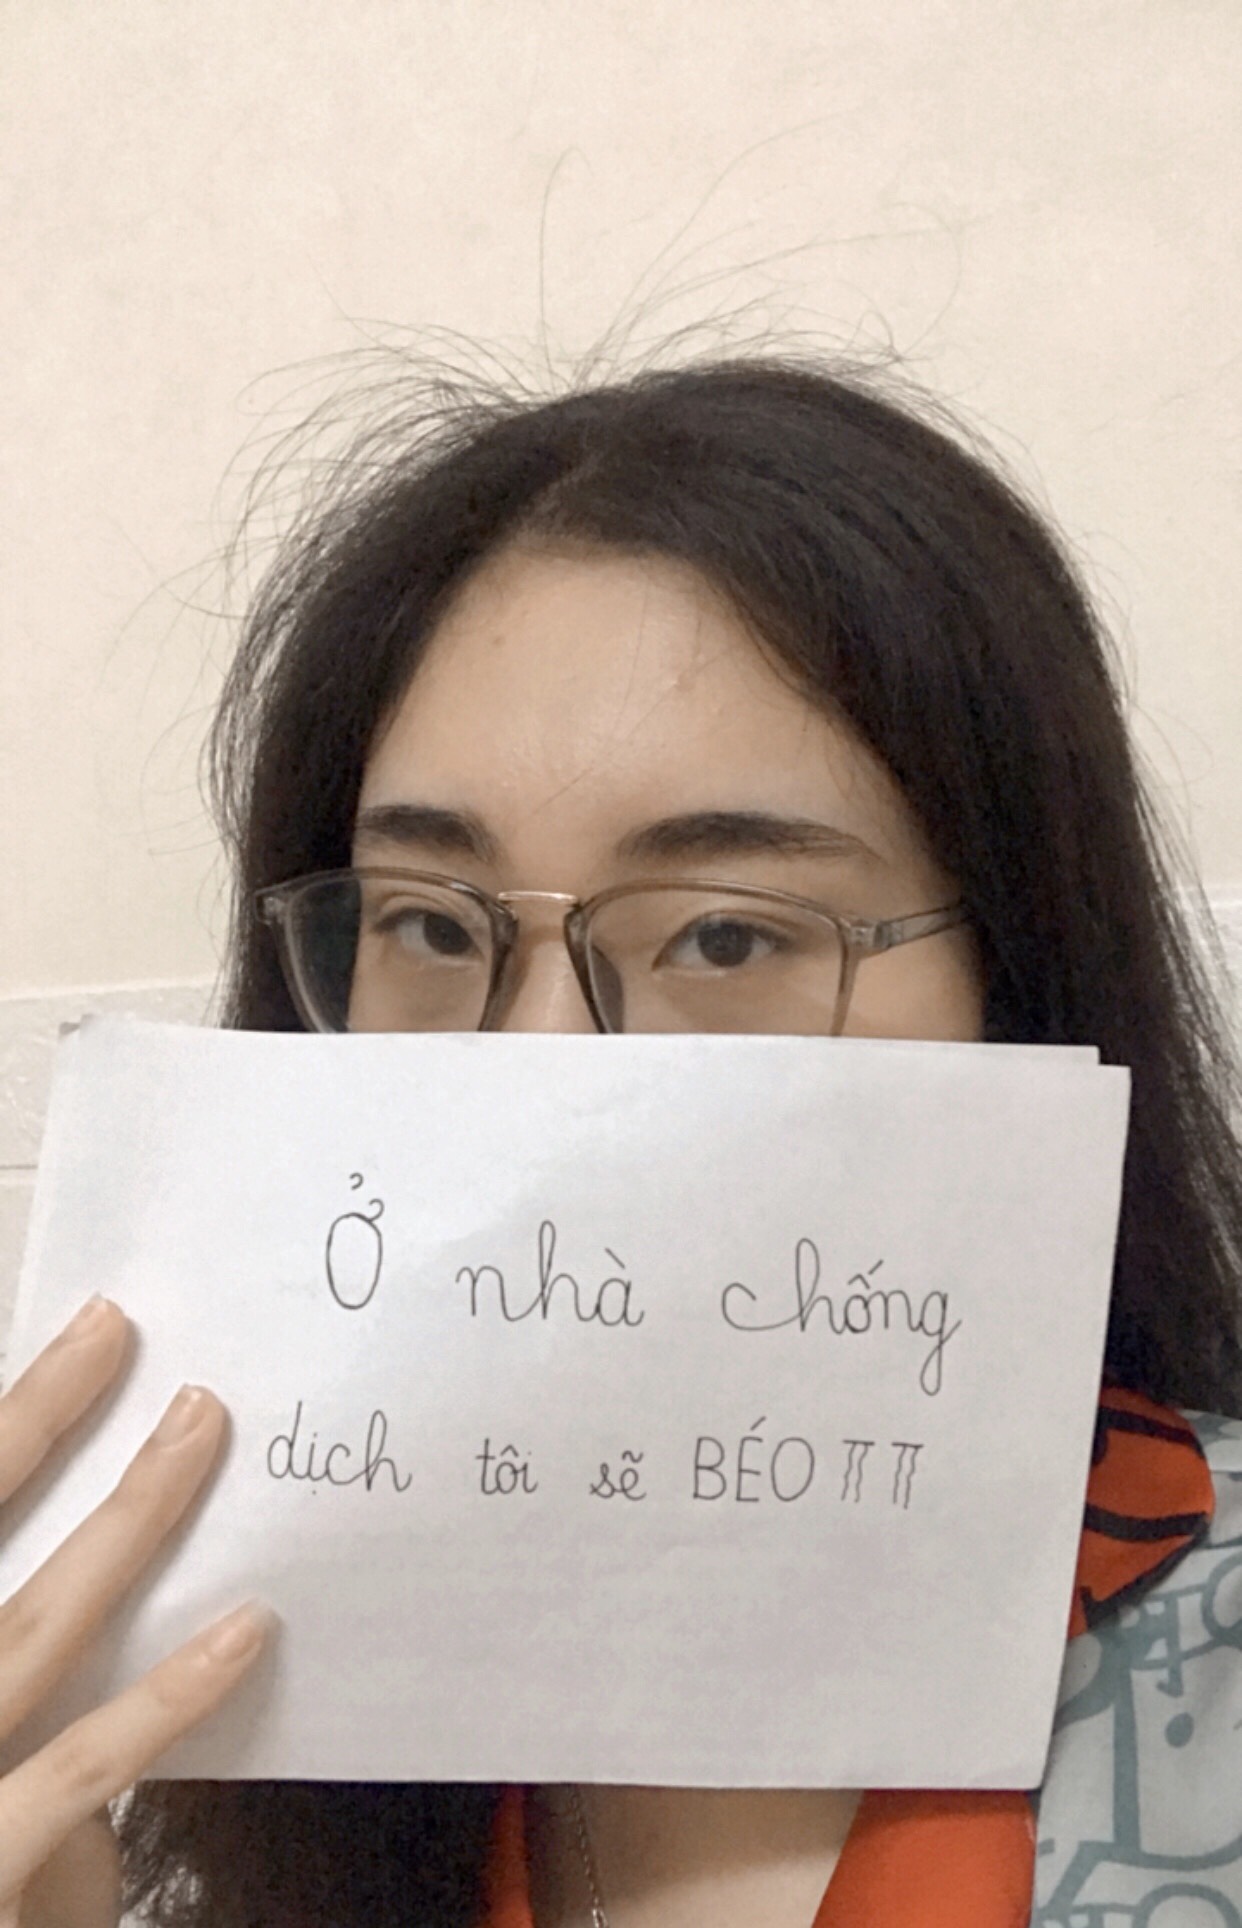 Ở nhà chống
dịch tôi sẽ BÉO TT TT